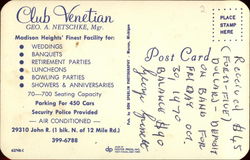 Club Venetian
GEO. A. NETSCHKE, Mgr.
Madison Heights' Finest Facility for:
WEDDINGS
BANQUETS
RETIREMENT PARTIES
LUNCHEONS
BOWLING PARTIES
SHOWERS & ANNIVERSARIES
70—700 Seating Capacity
Parking For 450 Cars
Security Police Provided
— AIR CONDITIONED —
29310 John R. (1 blk. N. of 12 Mile Rd.)
399-6788
Post Card
RECEIVED $65
DOLLARS DEPOSIT
ON BAND FOR
FRIDAY OCT.
30, 1970
BALANCE $140
George